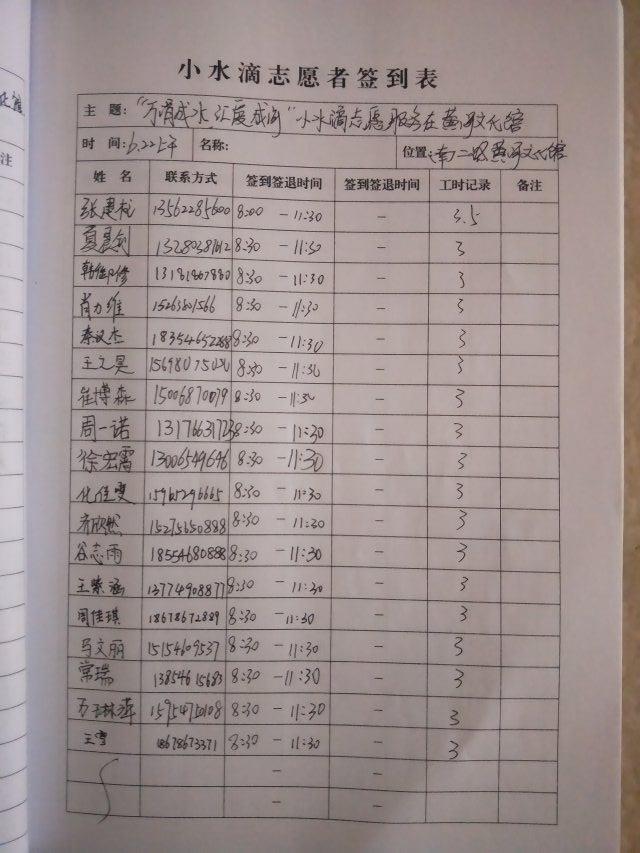 小水滴志愿者签到表
主 题:"万涓成水 汇度成河"小水滴志愿服务在黄河文化馆
时 间:6.22上午 名称: 位置:南二路黄河文化馆
姓 名 联系方式 签到签退时间 签到签退时间 工时记录 备注
13562285600 8:00 -11:30 - 3.5
8:30 -11:30 - 3
8:30 -11:30 - 3
肖力维 15263801566 8:30 -11:30 - 3
秦汉杰 18354652288 8:30 -11:30 - 3
王文昊 8:30 -11:30 - 3
崔博森 15006870079 8:30 -11:30 - 3
周一诺 8:30 -11:30 - 3
徐宏霄 13006549646 8:30 -11:30 - 3
化佳雯 15965296665 8:30 -11:30 - 3
齐欣然 15275650888 8:30 -11:30 - 3
谷志雨 18554680888 8:30 -11:30 - 3
王紫涵 13774908877 8:30 -11:30 - 3
周佳琪 18678672889 8:30 -11:30 - 3
马文丽 15154609537 8:30 -11:30 - 3
常瑞 13854615683 8:30 -11:30 - 3
15954750108 8:30 -11:30 - 3
王雪 18678673371 8:30 -11:30 - 3
- -
- -